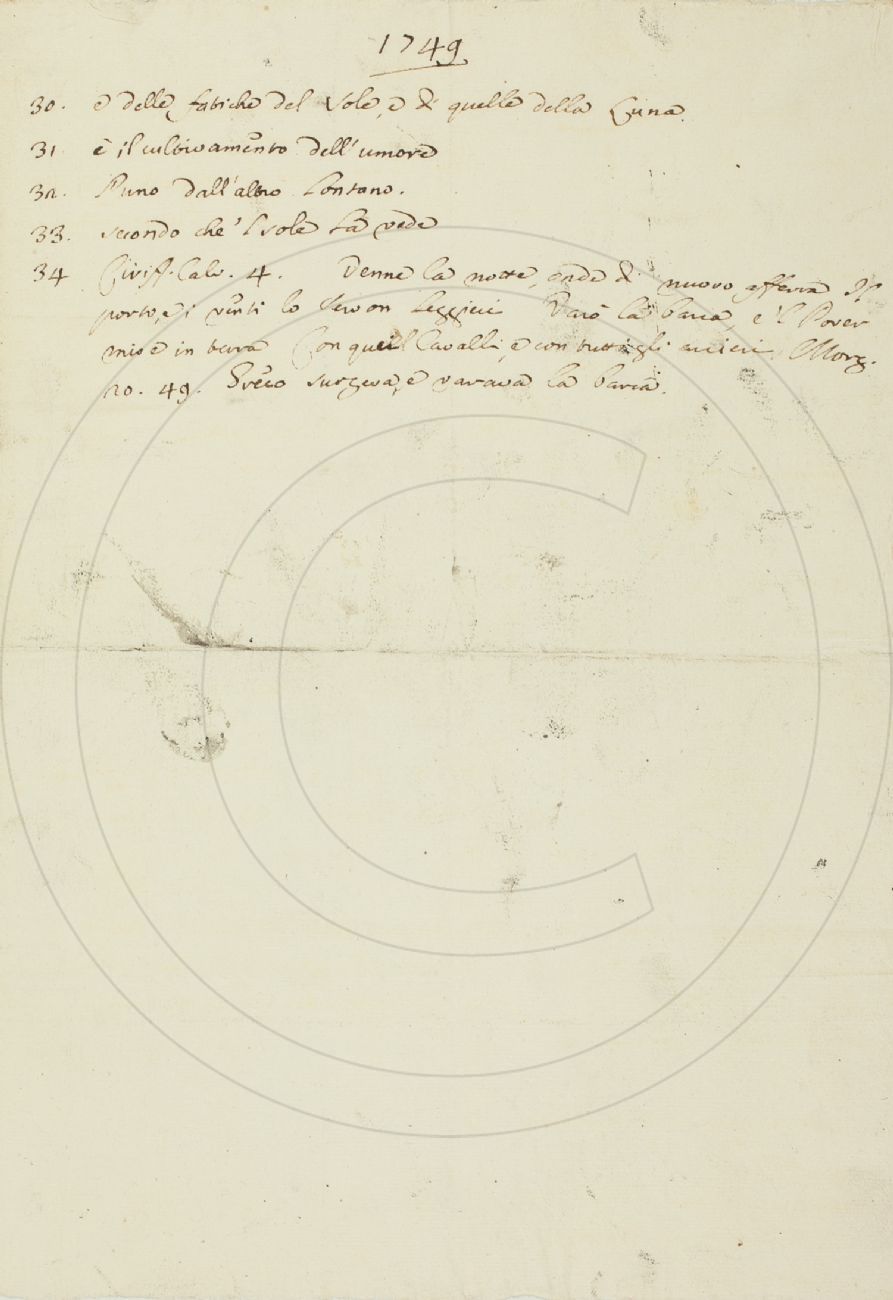 1749
30. e delle fatiche del Sole, e di quelle della Luna.
31 è il cultivamento dell'umore
32. l'uno dall'altro lontano.
33. secondo che 'l sole la vede
34 Ciriff. Calv. 4. Venne la notte, onde di nuovo afferra il
porto, e i venti lo feron leggieri Varò la barca, e 'l Pover
mise in terra Con quei Cavalli, e con tutti gli arcieri. Morg.
20. 49. Greco surgeva, e varava la barca.